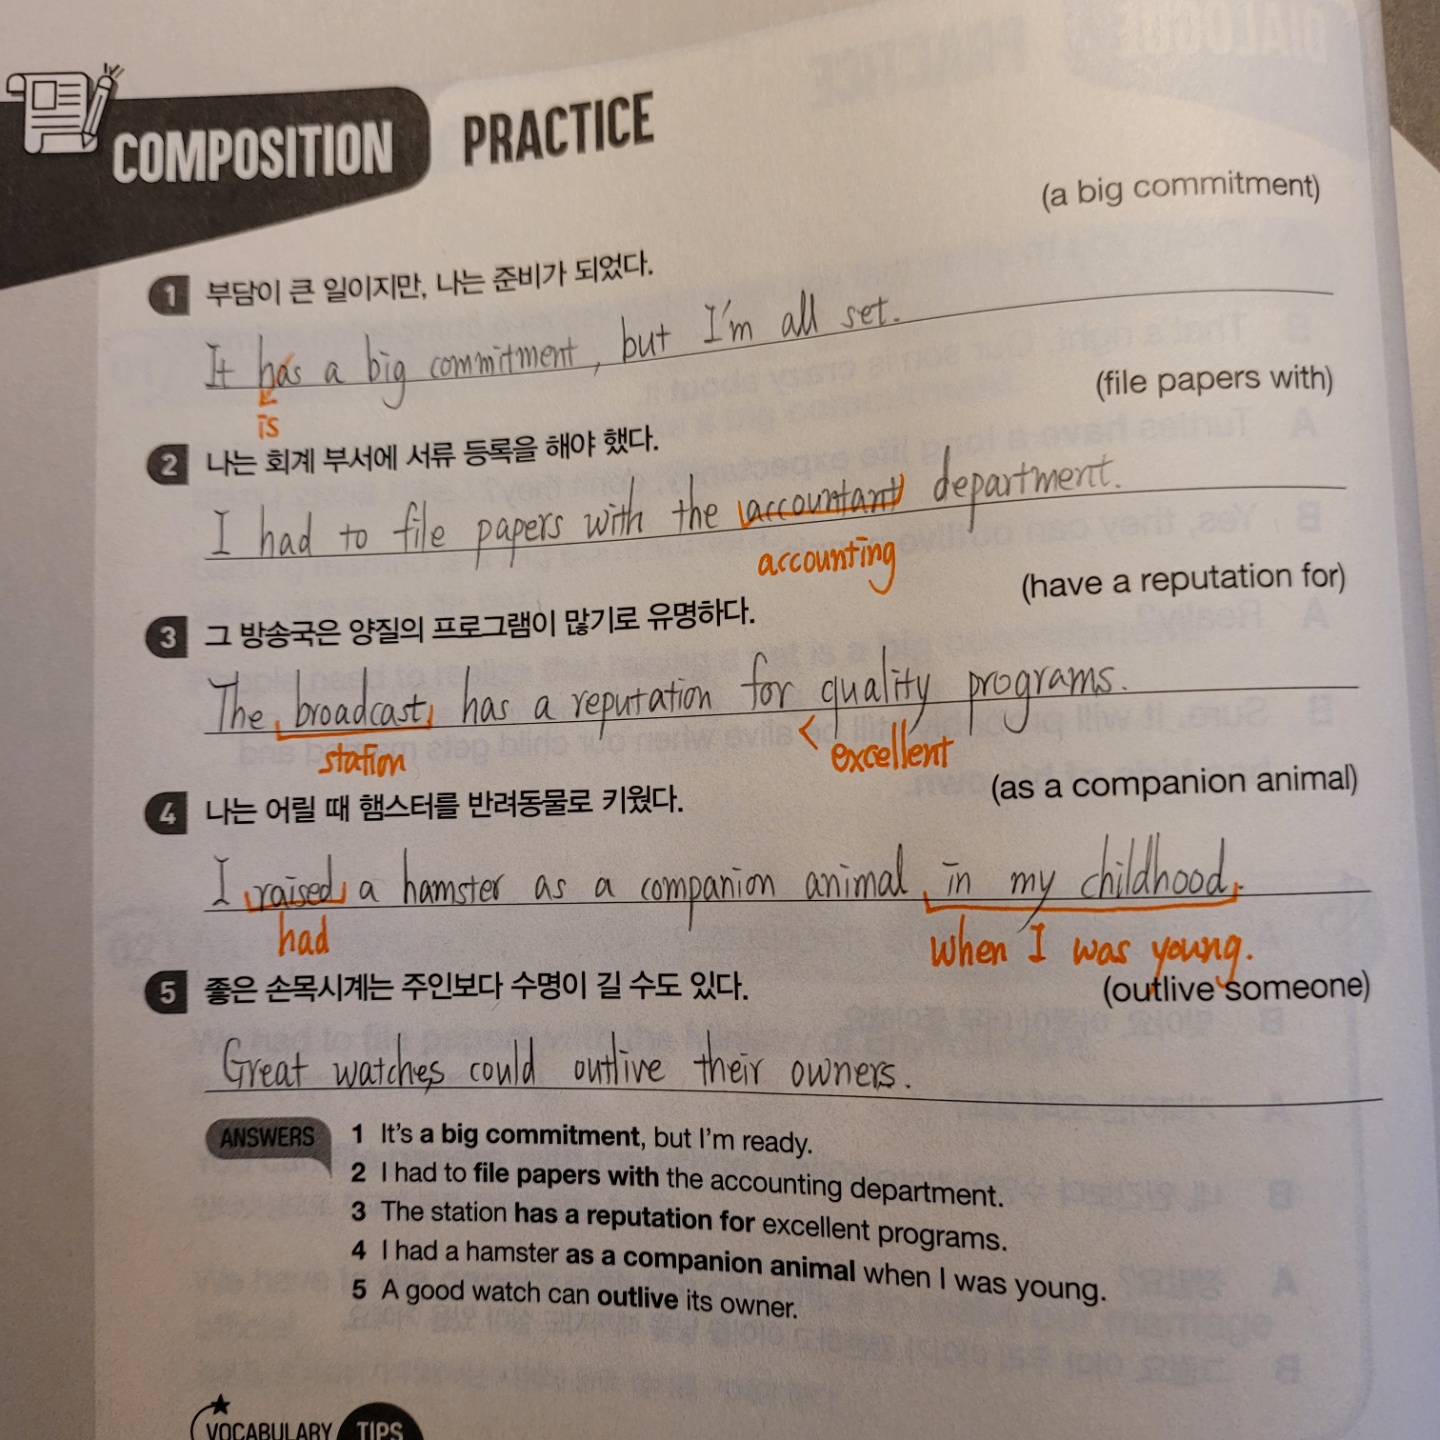 COMPOSITION PRACTICE
(a big commitment)
1 부담이 큰 일이지만, 나는 준비가 되었다.
It has a big commitment, but I'm all set.
is
(file papers with)
2 나는 회계 부서에 서류 등록을 해야 했다.
I had to file papers with the accountant department.
accounting
(have a reputation for)
3 그 방송국은 양질의 프로그램이 많기로 유명하다.
The broadcast has a reputation for quality programs.
station < excellent
(as a companion animal)
4 나는 어릴 때 햄스터를 반려동물로 키웠다.
I raised a hamster as a companion animal in my childhood.
had when I was young.
(outlive someone)
5 좋은 손목시계는 주인보다 수명이 길 수도 있다.
Great watches could outlive their owners.
ANSWERS
1 It's a big commitment, but I'm ready.
2 I had to file papers with the accounting department.
3 The station has a reputation for excellent programs.
4 I had a hamster as a companion animal when I was young.
5 A good watch can outlive its owner.
VOCABULARY TIPS